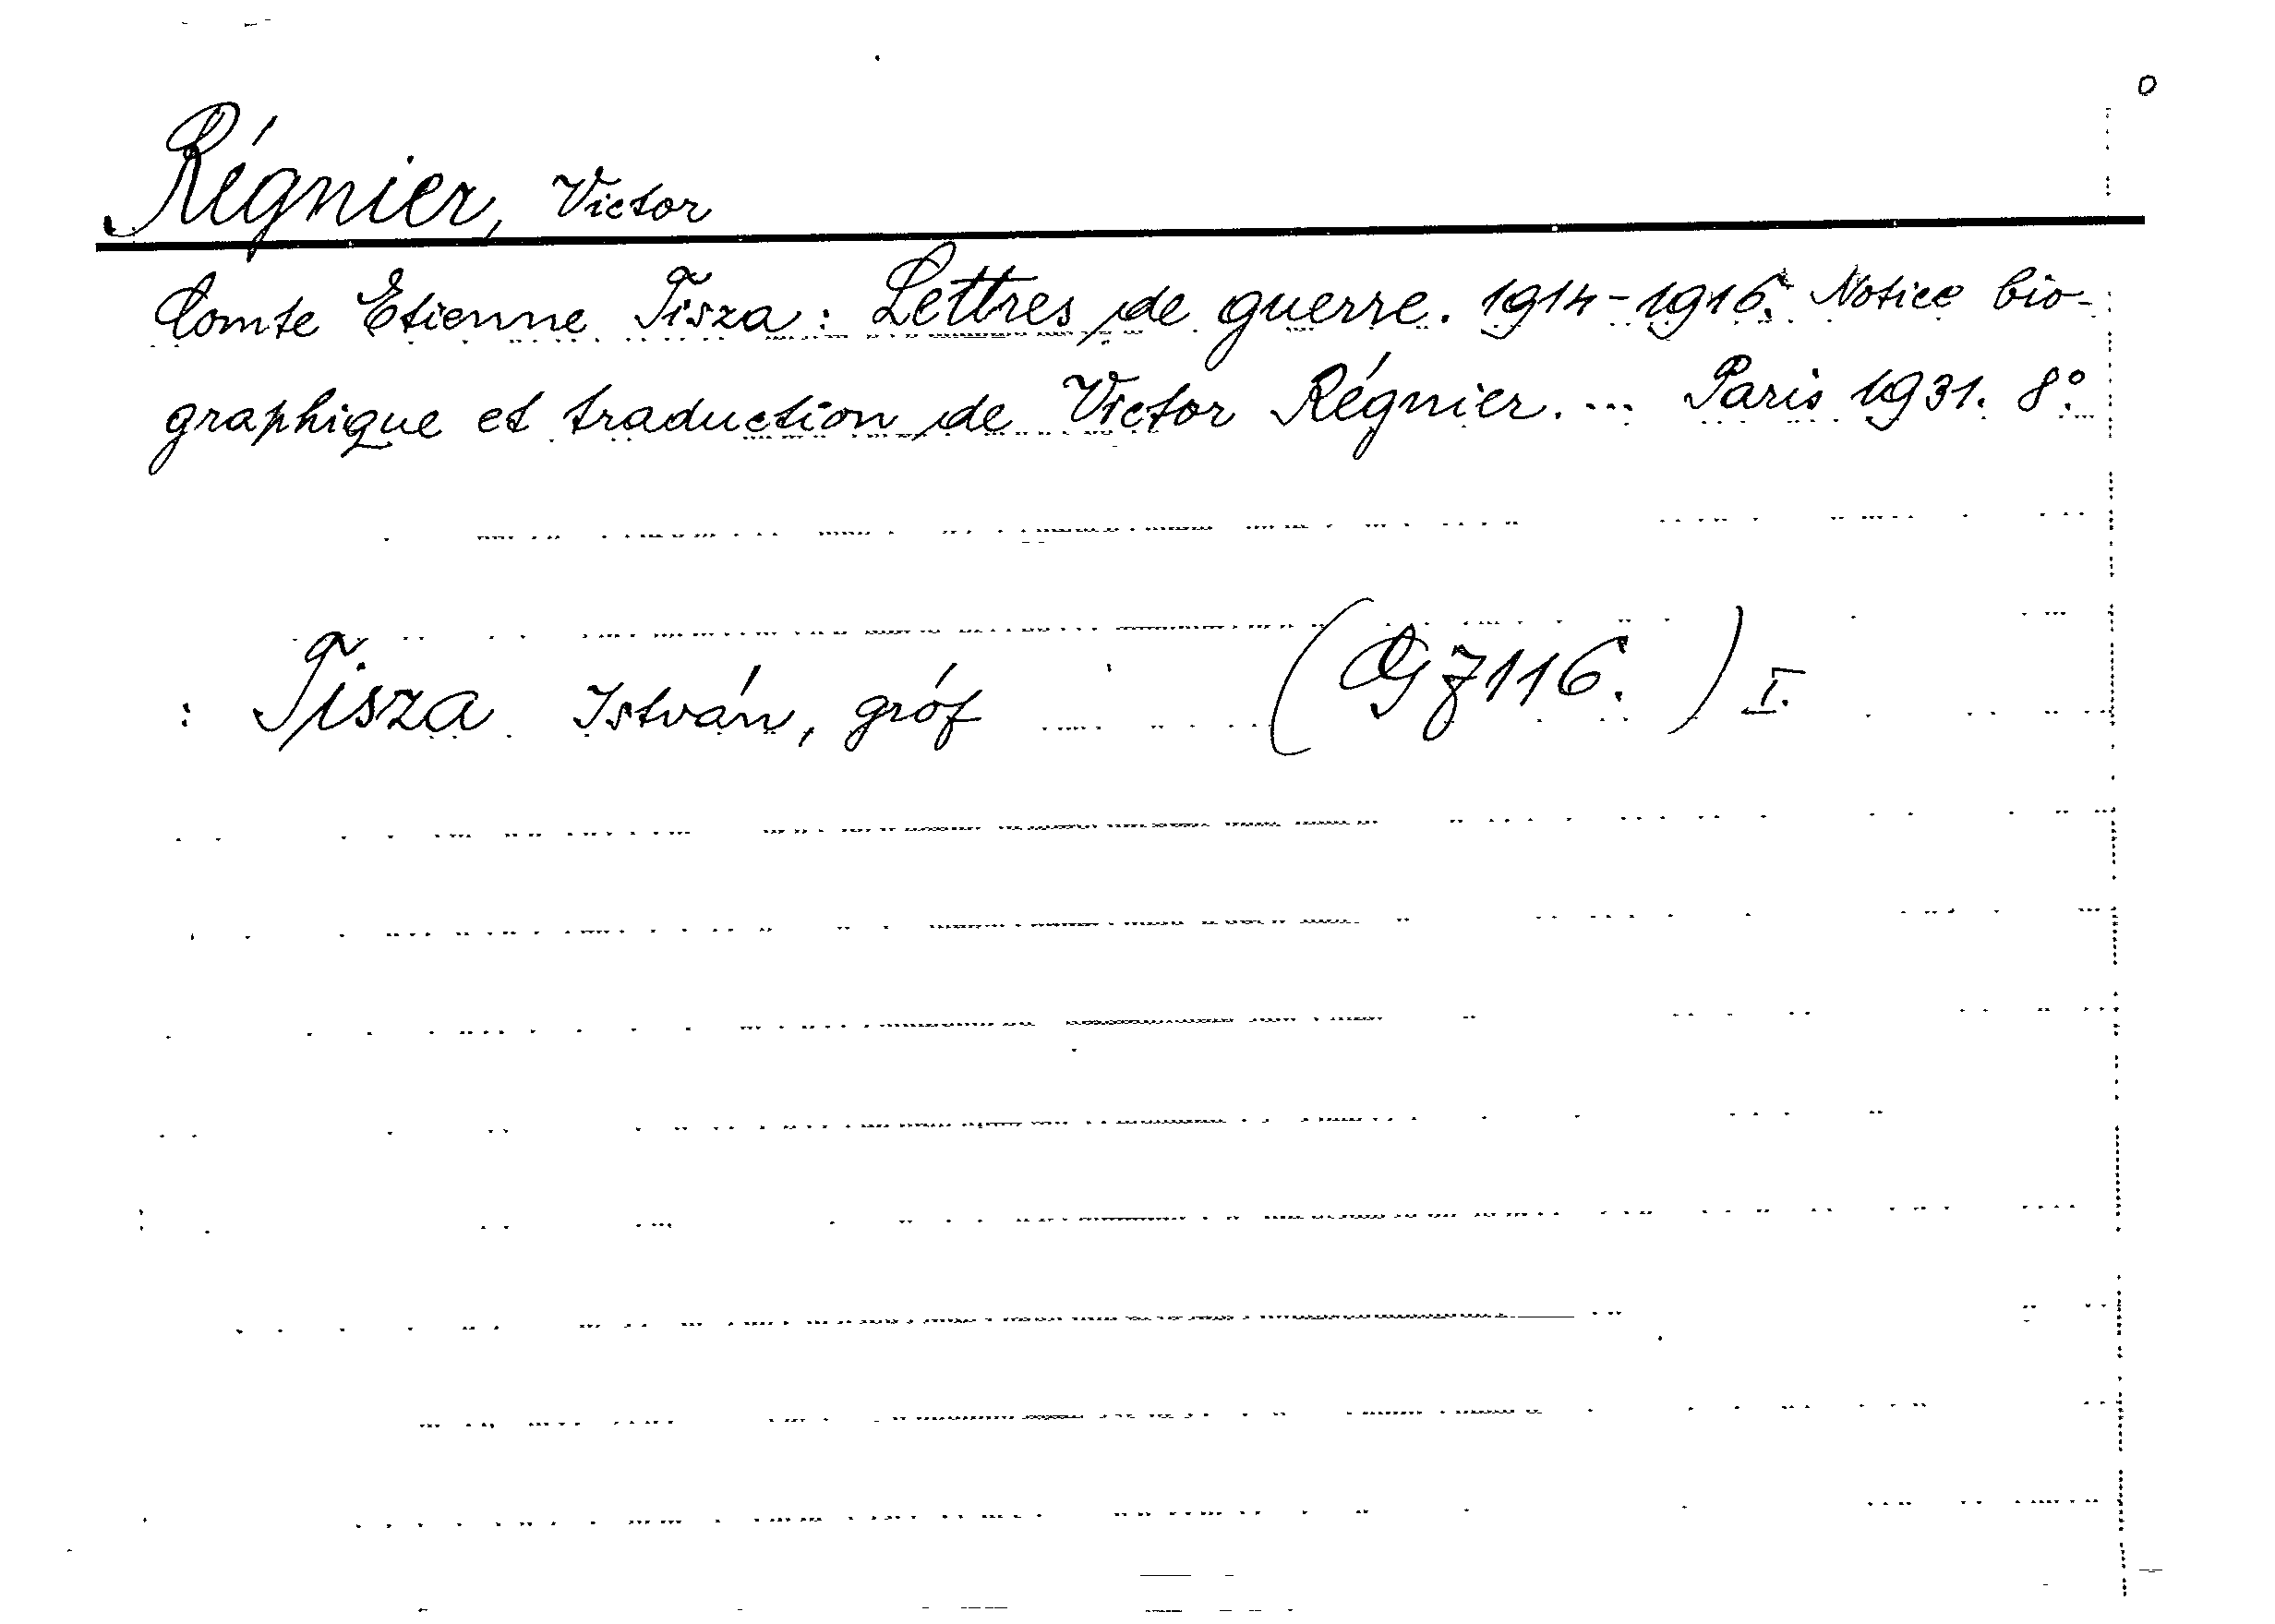 Régnier, Victor
Comte Etienne Tisza: Lettres de guerre. 1914-1916. Notice bio-
graphique et traduction de Victor Régnier. ... Paris 1931. 8°.
: Tisza István, gróf (116.) I.